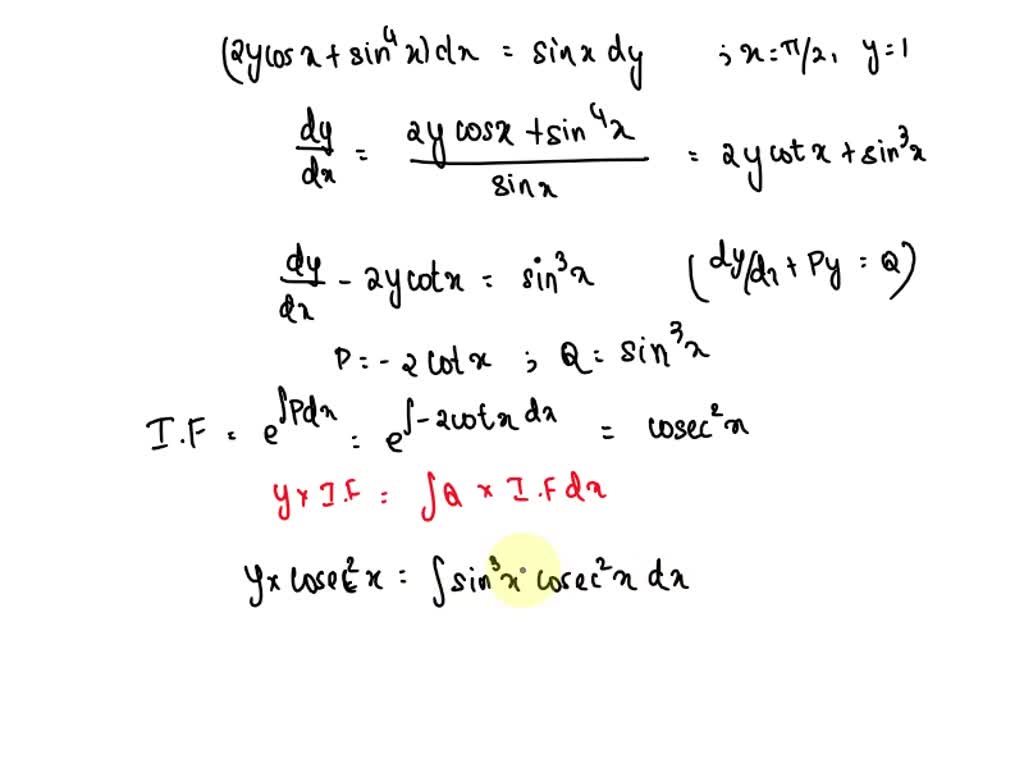 (2y cos x + sin⁴x) dx = sin x dy ; x = π/2, y = 1
dy/dx = (2y cos x + sin⁴x)/sin x = 2y cot x + sin³x
dy/dx - 2y cot x = sin³x (dy/dx + Py = Q)
P = - 2 cot x ; Q = sin³x
I.F = e^∫Pdx = e^∫-2cot x dx = cosec²x
y × I.F = ∫Q × I.F dx
y × cosec²x = ∫sin³x cosec²x dx